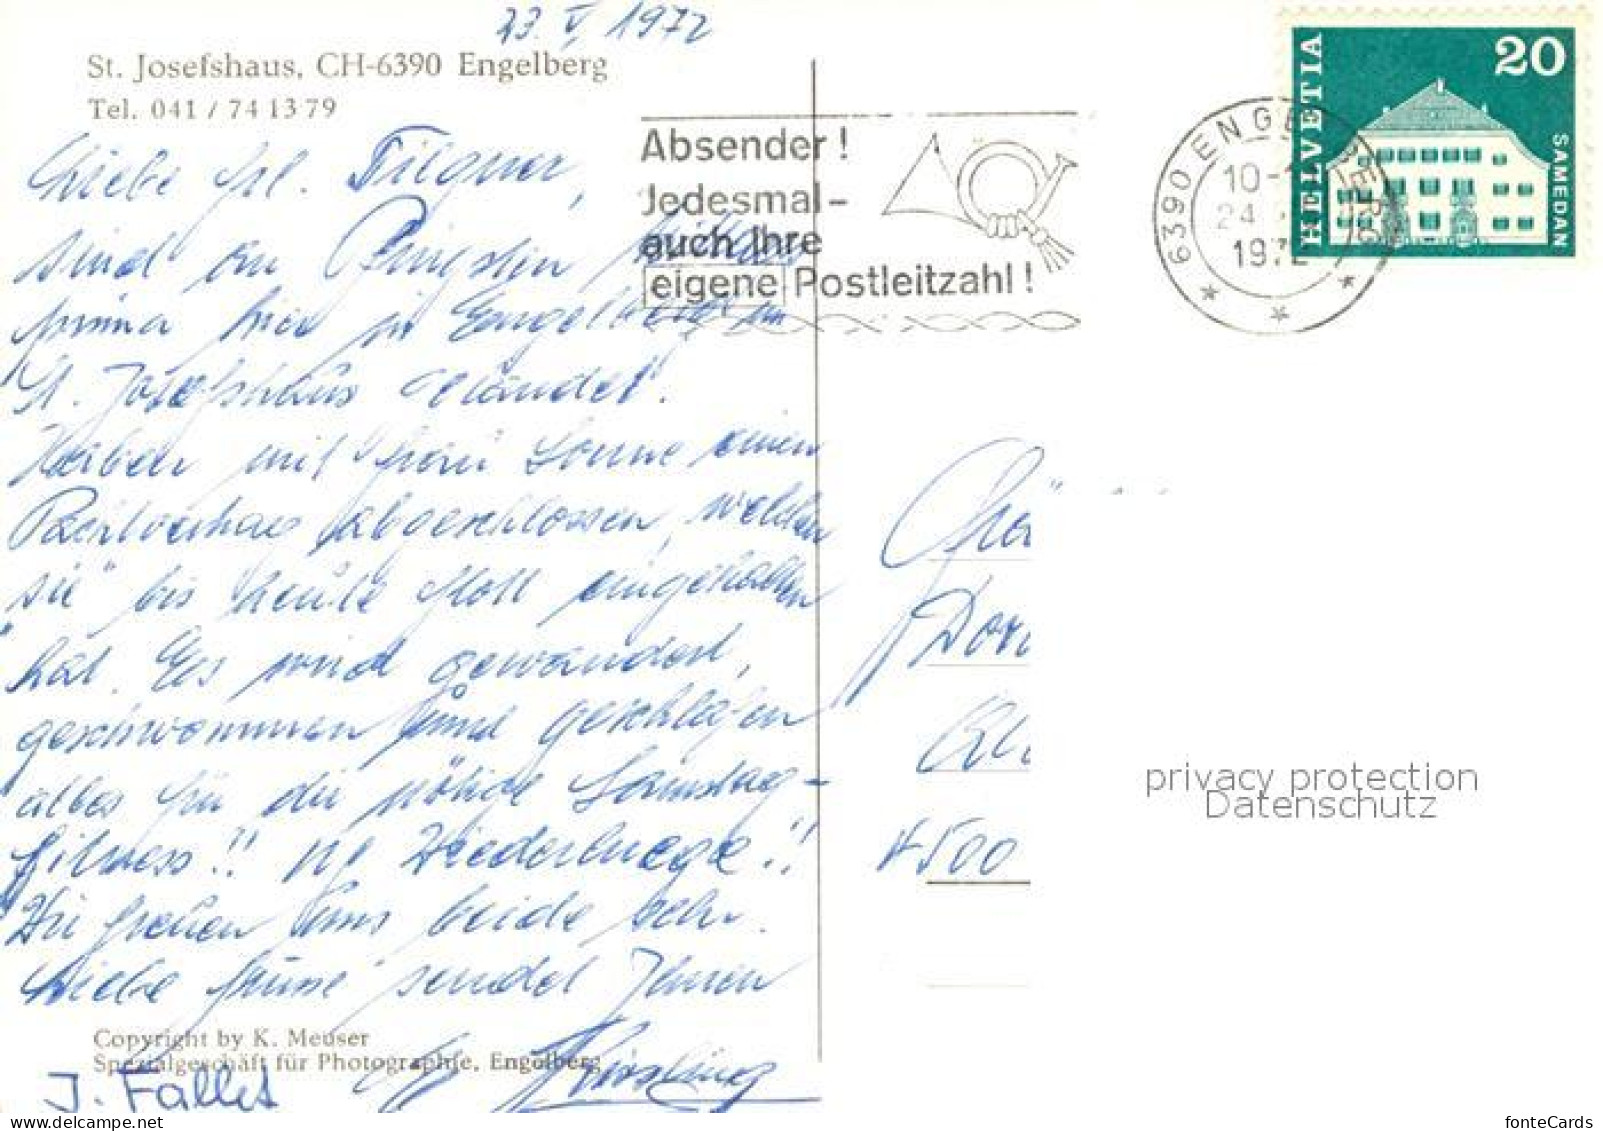 23. V. 1972
St. Josefshaus, CH-6390 Engelberg
Tel. 041 / 74 13 79
Liebe Frl. Filgner,
sind an Pfingsten
prima hier in Engelberg im
St. Josefshaus gelandet.
Haben mit Frau Sonne einen
Pachtvertrag abgeschlossen, welchen
sie bis heute flott eingehalten
hat. Es wird gewandert,
geschwommen und geschlafen
alles für die nötige Samstag-
fitness!!
Wir freuen uns beide sehr.
Liebe Grüsse sendet Ihnen
Copyright by K. Meuser
Spezialgeschäft für Photographie, Engelberg
J. Fallet
Absender!
Jedesmal-
auch Ihre
eigene Postleitzahl!
6390 ENGELBERG
10-
24
1972
HELVETIA
20
SAMEDAN
4500
privacy protection
Datenschutz
fonteCards